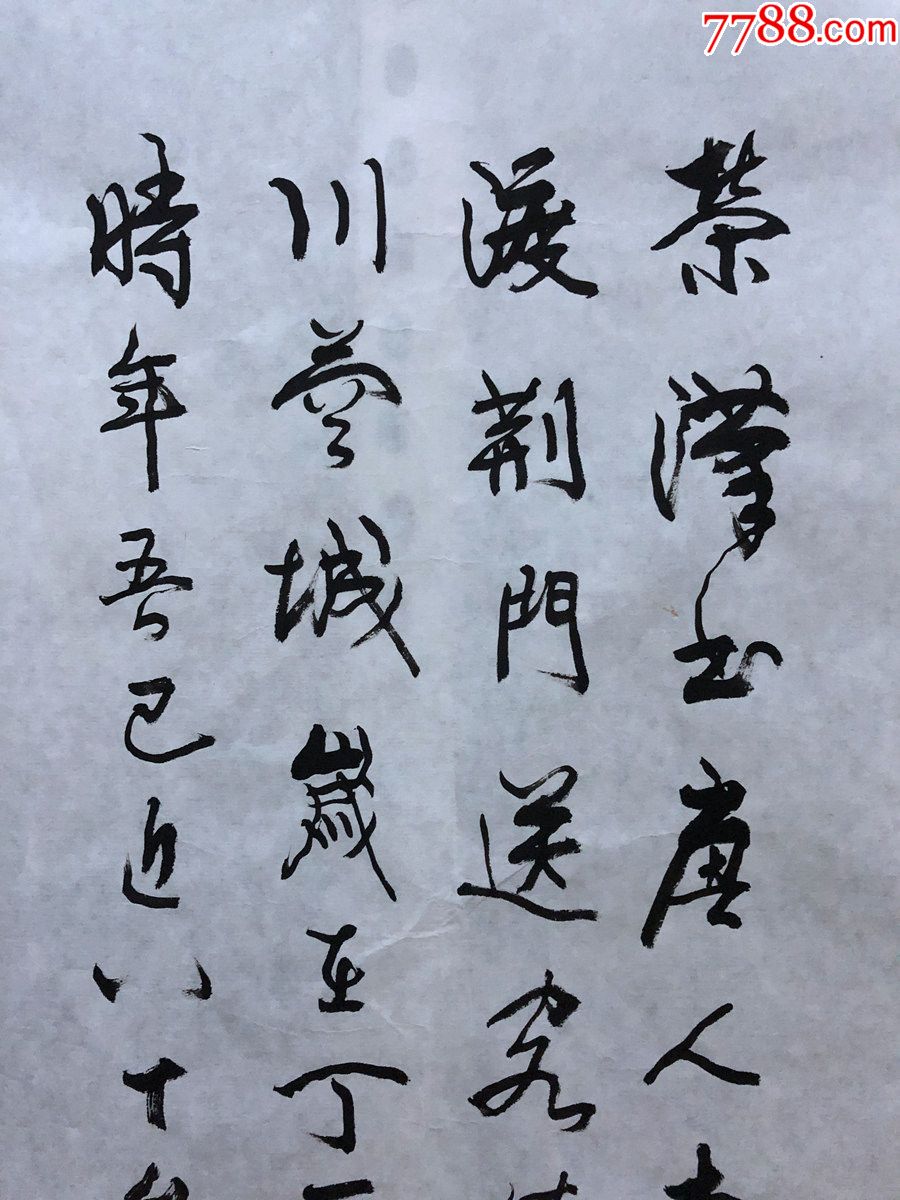 7788.com
荣漢書唐人
渡荆門送客
川蓉城歲在丁
時年吾已近八十